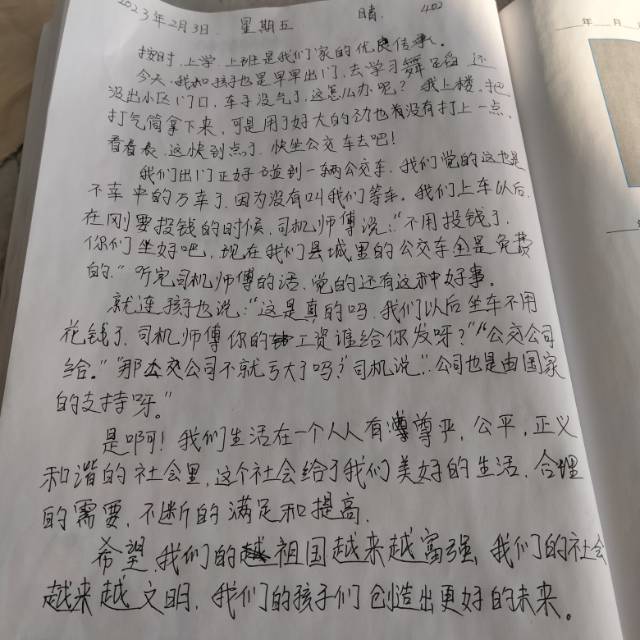 2023年2月3日 星期五 晴 402
按时上学、上班是我们家的优良传承。
今天,我和孩子也是早早出门,去学习舞蹈,还
没出小区门口,车子没气了,这怎么办呢?我上楼,把
打气筒拿下来,可是用了好大的劲也没有打上一点,
看看表,这快到点了,快坐公交车去吧!
我们出门正好碰到一辆公交车,我们觉的这也是
不幸中的万幸了,因为没有叫我们等车。我们上车以后,
在刚要投钱的时候,司机师傅说:“不用投钱了,
你们坐好吧,现在我们县城里的公交车全是免费
的。”听完司机师傅的话,觉的还有这种好事。
就连孩子也说:“这是真的吗,我们以后坐车不用
花钱了,司机师傅你的工资谁给你发呀?”“公交公司
给。”“那公交公司不就亏大了吗?”司机说:“公司也是由国家
的支持呀。”
是啊!我们生活在一个人人有尊严,公平,正义
和谐的社会里,这个社会给了我们美好的生活,合理
的需要,不断的满足和提高.
希望,我们的祖国越来越富强,我们的社会
越来越文明,我们的孩子们创造出更好的未来。
年 月